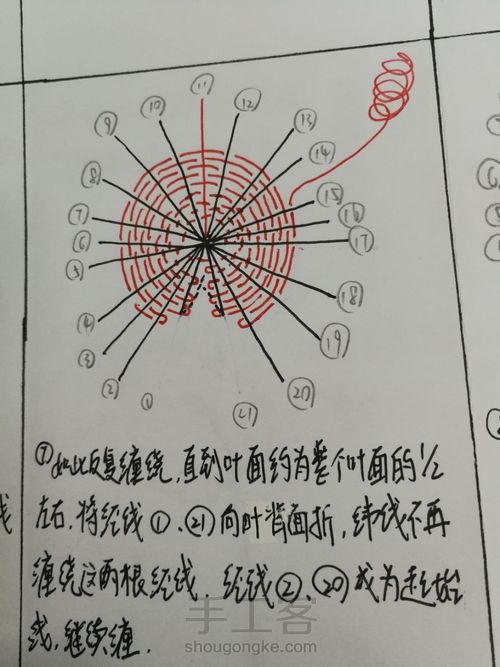 ⑪
⑩
⑫
⑨
⑬
⑭
⑧
⑮
⑦
⑯
⑥
⑰
⑤
⑱
④
⑲
③
②
⑳
①
㉑
⑦如此反复缠绕,直到叶面约为整个叶面的1/2
左右,将经线①、㉑向叶背面折,纬线不再
缠绕这两根经线.经线②、⑳成为起始
线,继续缠.
线
手工客
shougongke.com